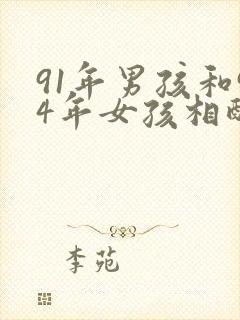 91年男孩和9
4年女孩相配
李苑